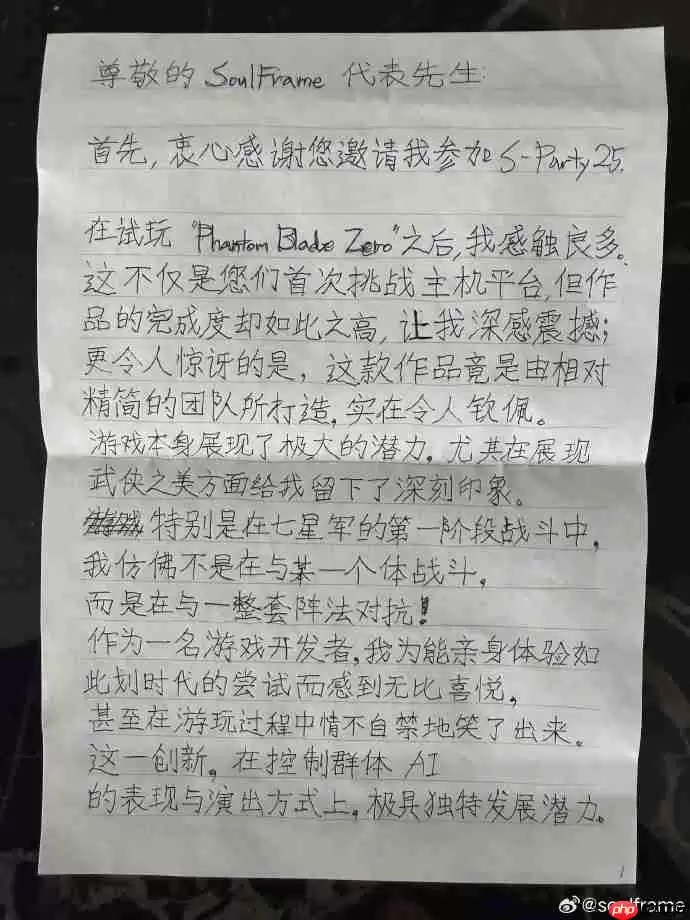 尊敬的 SoulFrame 代表先生:
首先,衷心感谢您邀请我参加 S-Party 25.
在试玩 "Phantom Blade Zero" 之后,我感触良多。
这不仅是您们首次挑战主机平台,但作
品的完成度却如此之高,让我深感震撼;
更令人惊讶的是,这款作品竟是由相对
精简的团队所打造,实在令人钦佩。
游戏本身展现了极大的潜力,尤其在展现
武侠之美方面给我留下了深刻印象。
特别是在七星军的第一阶段战斗中,
我仿佛不是在与某一个体战斗,
而是在与一整套阵法对抗!
作为一名游戏开发者,我为能亲身体验如
此划时代的尝试而感到无比喜悦,
甚至在游玩过程中情不自禁地笑了出来。
这一创新,在控制群体 AI
的表现与演出方式上,极具独特发展潜力。
1
@soulframe
php